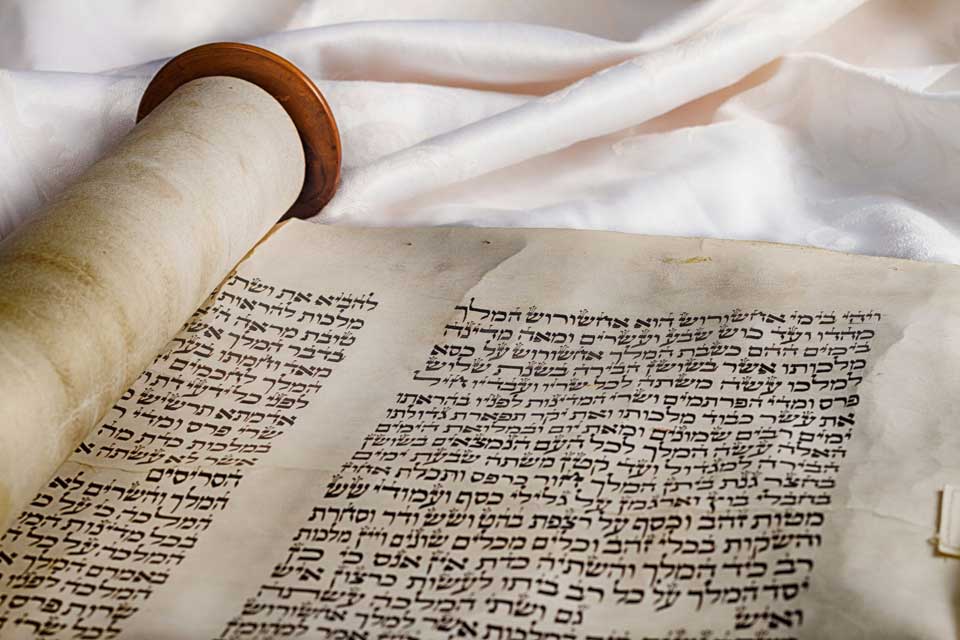 ויהי בימי אחשורוש הוא אחשורוש המלך
מהדו ועד כוש שבע ועשרים ומאה מדינה
בימים ההם כשבת המלך אחשורוש על כסא
מלכותו אשר בשושן הבירה בשנת שלוש
למלכו עשה משתה לכל שריו ועבדיו חיל
פרס ומדי הפרתמים ושרי המדינות לפניו בהראתו
את עשר כבוד מלכותו ואת יקר תפארת גדולתו
ימים רבים שמונים ומאת יום ובמלואת הימים
האלה עשה המלך לכל העם הנמצאים בשושן
הבירה למגדול ועד קטן משתה שבעת ימים
בחצר גנת ביתן המלך חור כרפס ותכלת אחוז
בחבלי בוץ וארגמן על גלילי כסף ועמודי שש
מטות זהב וכסף על רצפת בהט ושש ודר וסחרת
והשקות בכלי זהב וכלים מכלים שונים ויין מלכות
רב כיד המלך והשתיה כדת אין אנס כי כן
יסד המלך על כל רב ביתו לעשות כרצון איש
ואיש גם ושתי המלכה עשתה
אחשורוש
להביא את ושתי
מלכות להראות
טובת מראה היא
בדבר המלך אשר
מאד וחמתו בערה
המלך לחכמים
לפני כל ידעי דת
אדמתא תרשיש
שרי פרס ומדי
במלכות כדת מה
אשר לא עשתה
הסריסים
המלך והשרים לא
כי על כל
מדינות
המלכה על כל
באמרם המלך
המלכה לפניו
שרות פרס
לכל שרי